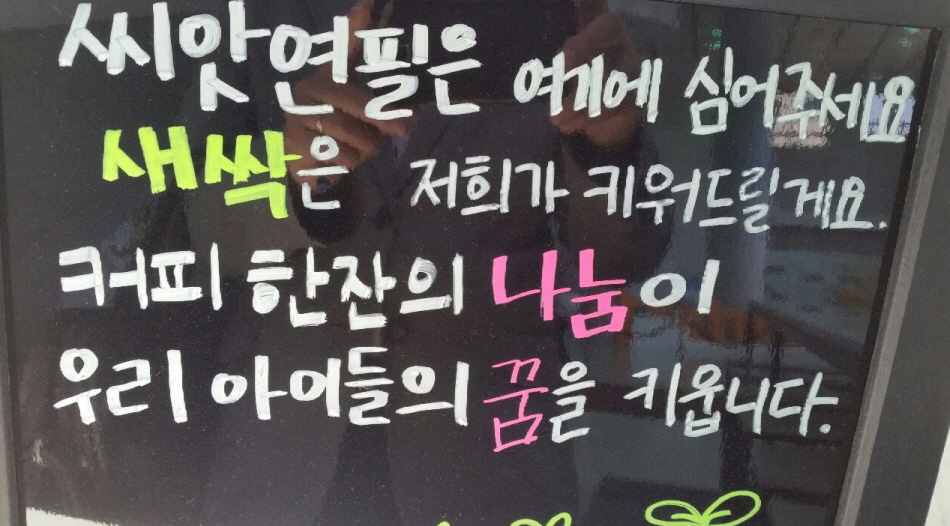 씨앗연필은 여기에 심어주세요
새싹은 저희가 키워드릴게요.
커피 한잔의 나눔이
우리 아이들의 꿈을 키웁니다.